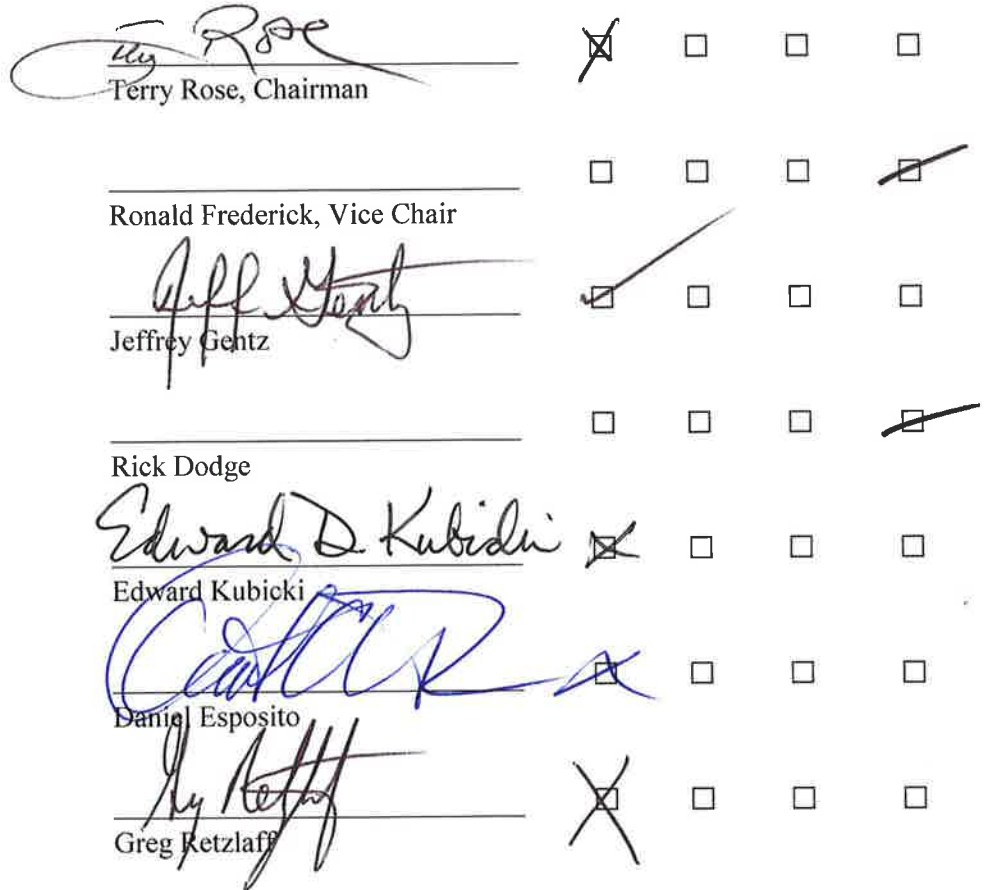 Terry Rose
Terry Rose, Chairman
Ronald Frederick, Vice Chair
Jeff Gentz
Jeffrey Gentz
Rick Dodge
Edward D. Kubicki
Edward Kubicki
Daniel Esposito
Greg Retzlaff